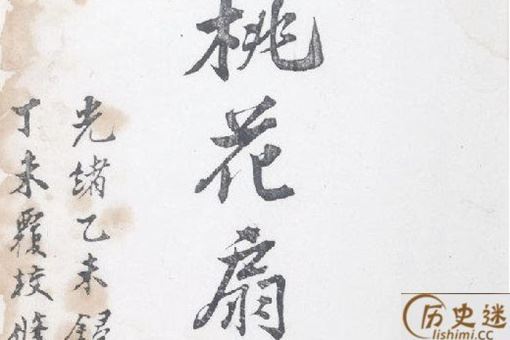 桃花扇
光绪乙未
丁未覆校
历史迷
lishimi.cc